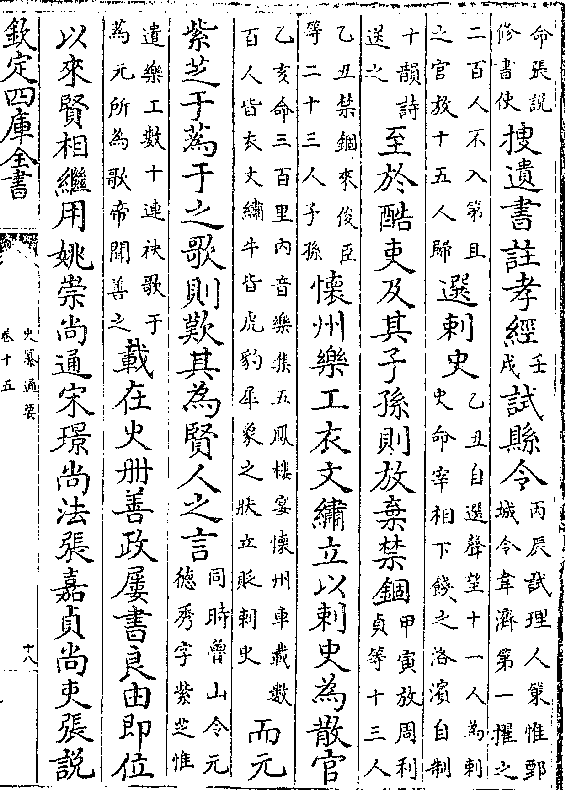 命張說修書使搜遺書註孝經壬戌試縣令丙辰試理人策惟鄄城令韋濟第一擢之
二百人不入第且之官放十五人歸選刺史乙丑自選聲望十一人為刺史命宰相下餞之洛濱自制
十韻詩送之至於酷吏及其子孫則放棄禁錮甲寅放周利貞等十三人
乙丑禁錮來俊臣等二十三人子孫懷州樂工衣文繡立以刺史為散官
乙亥命三百里內音樂集五鳳樓宴懷州車載數百人皆衣文繡牛皆虎豹犀象之狀立貶刺史而元
紫芝于蔿于之歌則歎其為賢人之言同時魯山令元德秀字紫芝惟
遣樂工數十連袂歌于為元所為歌帝聞善之載在史册善政屢書良由即位
以來賢相繼用姚崇尚通宋璟尚法張嘉貞尚吏張說
欽定四庫全書
史纂通要
卷十五
十八